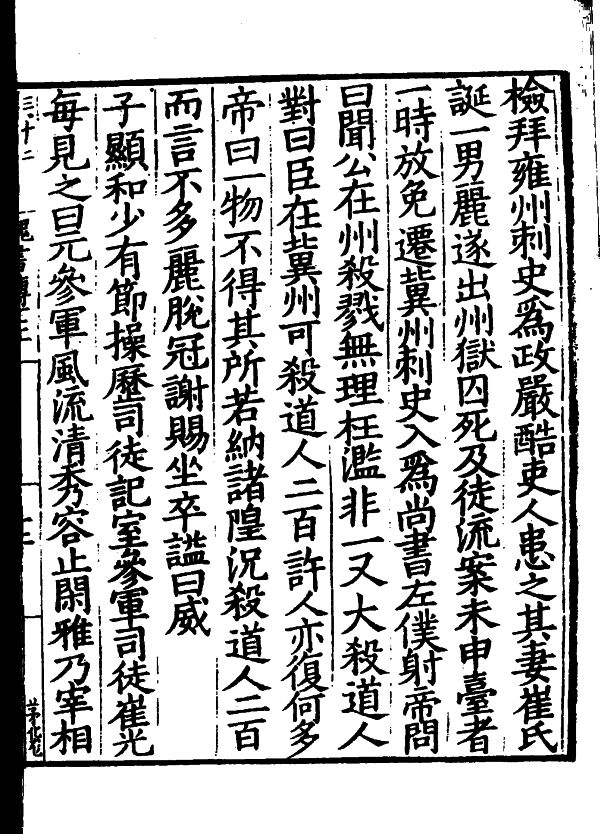 檢拜雍州刺史爲政嚴酷吏人患之其妻崔氏
誕一男麗遂出州獄囚死及徒流案未申臺者
一時放免遷冀州刺史入爲尚書左僕射帝問
曰聞公在州殺戮無理枉濫非一又大殺道人
對曰臣在冀州可殺道人二百許人亦復何多
帝曰一物不得其所若納諸隍況殺道人二百
而言不多麗脫冠謝賜坐卒謚曰威
子顯和少有節操歷司徒記室參軍司徒崔光
每見之曰元參軍風流清秀容止閑雅乃宰相